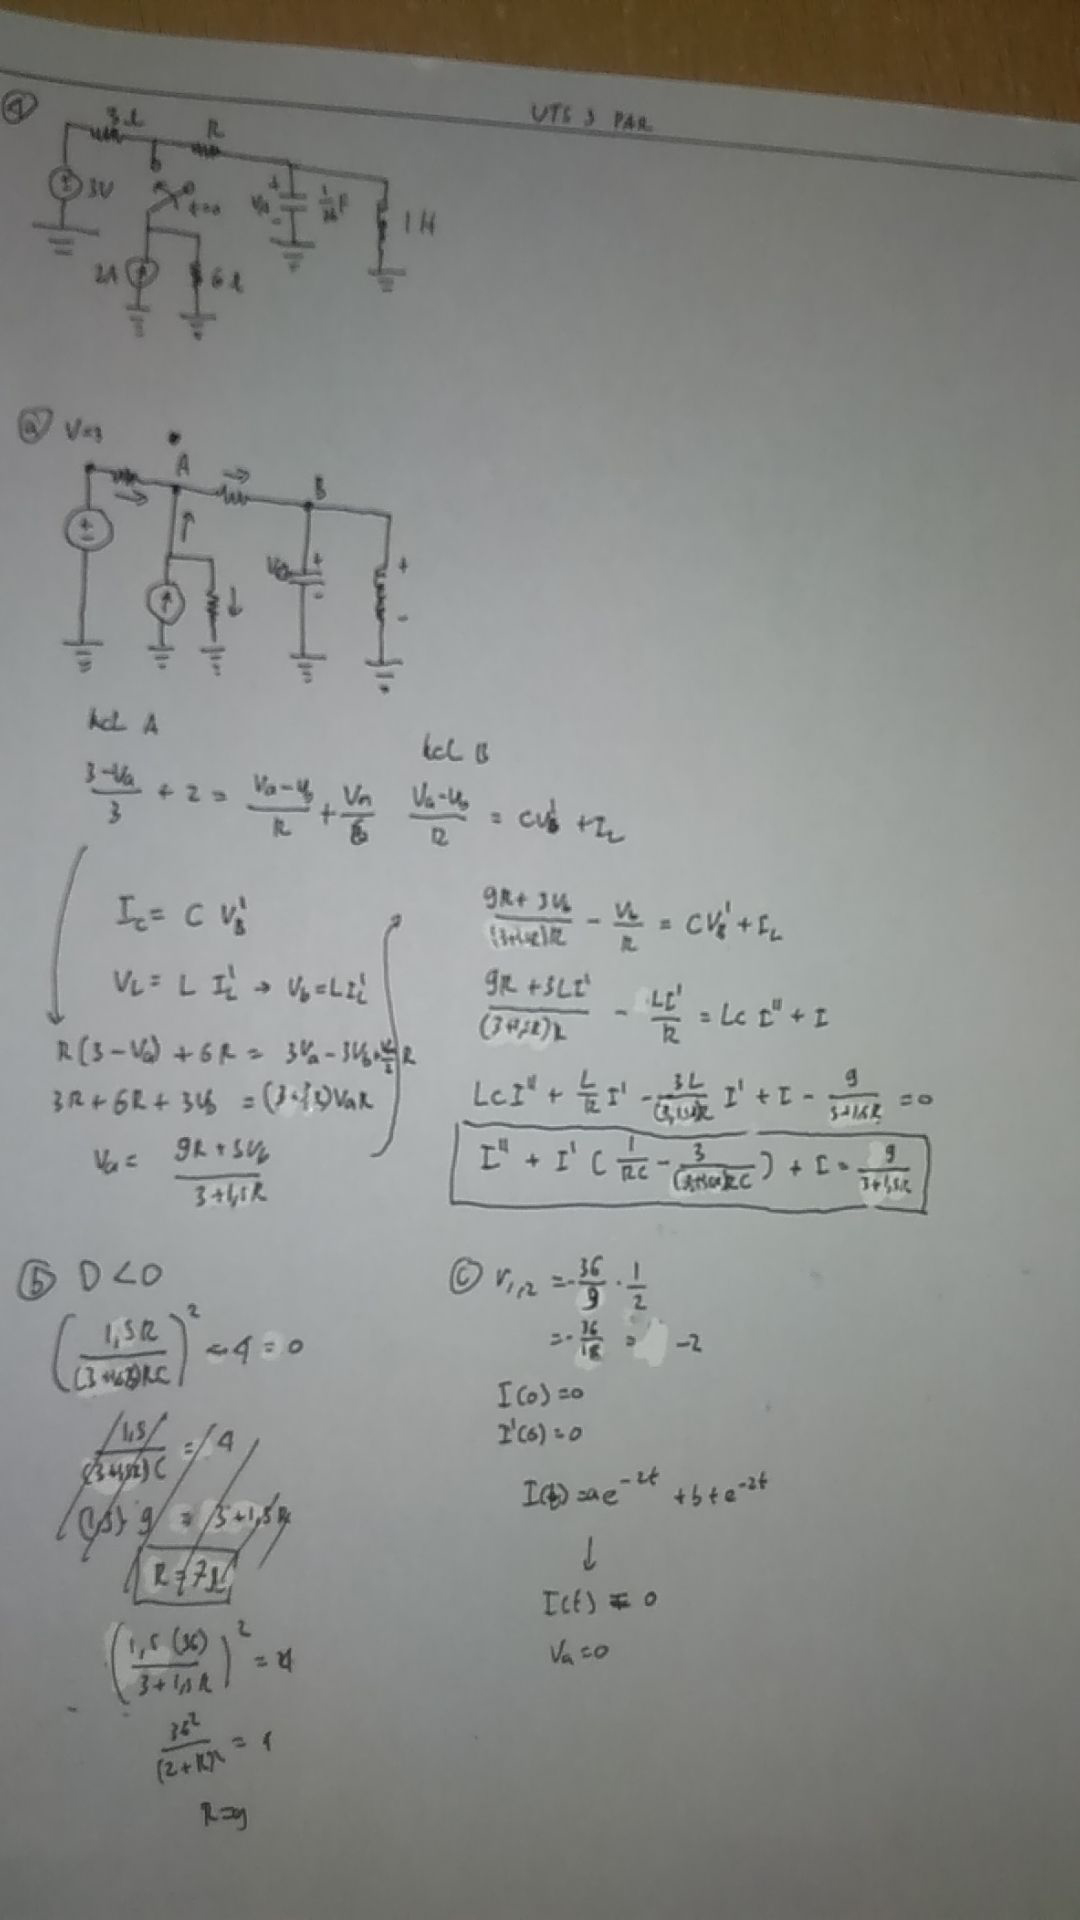 UTS 3 PAR
4
3Ω R
3V
t=0
1H
2A 6Ω
a V=3
A
B
+
-
+
-
kcL A
kcL B
3-Va/3 + 2 = Va-Vb/R + Va/6
Va-Vb/R = CVb' + IL
Ic = C VB'
VL = L IL' → Vb = LIL'
R(3-Va) + 6R = 3Va - 3Vb
3R + 6R + 3Vb =
Va = 9R + 3Vb / 3+1,5R
9R + 3Vb / (3+1,5R)R - Vb/R = CVB' + IL
9R + 3LI' / (3+1,5R)R - LI'/R = LC I" + I
LCI" + L/R I' - 3L/(3+1,5R)R I' + I - 9/3+1,5R = 0
I" + I' (1/RC - 3/(3+1,5R)RC) + I = 9/3+1,5R
b D<0
(1,5R/(3+1,5R)RC)² - 4 = 0
1,5/(3+1,5R)C = 4
(1,5) 9 = 3+1,5R
R=7Ω
(1,5 (36)/3+1,5R)² = 4
36²/(2+R)² =
R=9
c r1,2 = -36/9 · 1/2
= -36/18 = -2
I(0)=0
I'(0)=0
I(t)=ae^-2t + bte^-2t
↓
I(t) = 0
Va=0